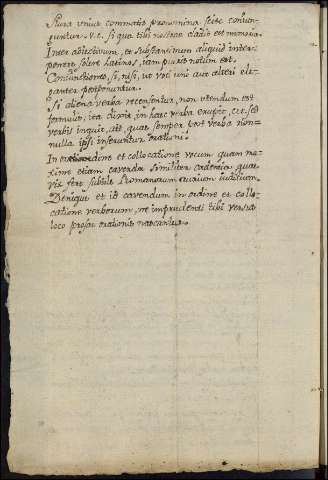 Plura unius commatis pronomina scite coniun-
guntur. v.c. si qua tibi nostrae cladis est memoria.
Inter adiectivum, et substantivum aliquid inter-
ponere, solere Latinos, iam pueris notum est.
Coniunctiones, si, nisi, ut voci uni aut alteri ele-
ganter postponuntur.
Si aliena verba recensentur, non utendum est
formulis, ita dixit, in haec verba erupit, etc. sed
verbis inquit, ait, quae semper post verba non-
nulla ipsi inseruntur orationi.
In ordine et collocatione vocum quam ma-
xime etiam cavenda similiter cadentia, quae
vix fert subtile Romanorum aurium iudicium.
Denique et id cavendum in ordine et collo-
catione verborum, ne imprudenti tibi versus
loco prosae orationis nascantur.